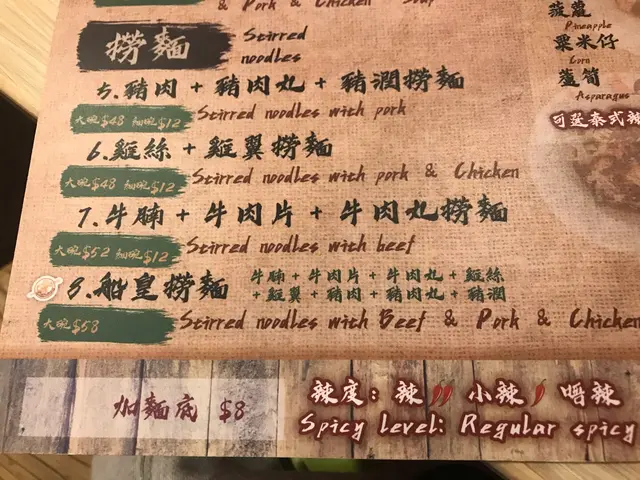 & Pork & Chicken Soup
撈麵 Stirred noodles
5.豬肉 + 豬肉丸 + 豬潤撈麵
大碗$48 細碗$12 Stirred noodles with pork
6.雞絲 + 雞翼撈麵
大碗$48 細碗$12 Stirred noodles with pork & Chicken
7.牛腩 + 牛肉片 + 牛肉丸撈麵
大碗$52 細碗$12 Stirred noodles with beef
8.船皇撈麵 牛腩 + 牛肉片 + 牛肉丸 + 雞絲
+ 雞翼 + 豬肉 + 豬肉丸 + 豬潤
大碗$58 Stirred noodles with Beef & Pork & Chicken
加麵底 $8
辣度：辣 小辣 唔辣
Spicy Level: Regular spicy
菠蘿
Pineapple
粟米仔
Corn
蘆筍
Asparagus
可選泰式辣